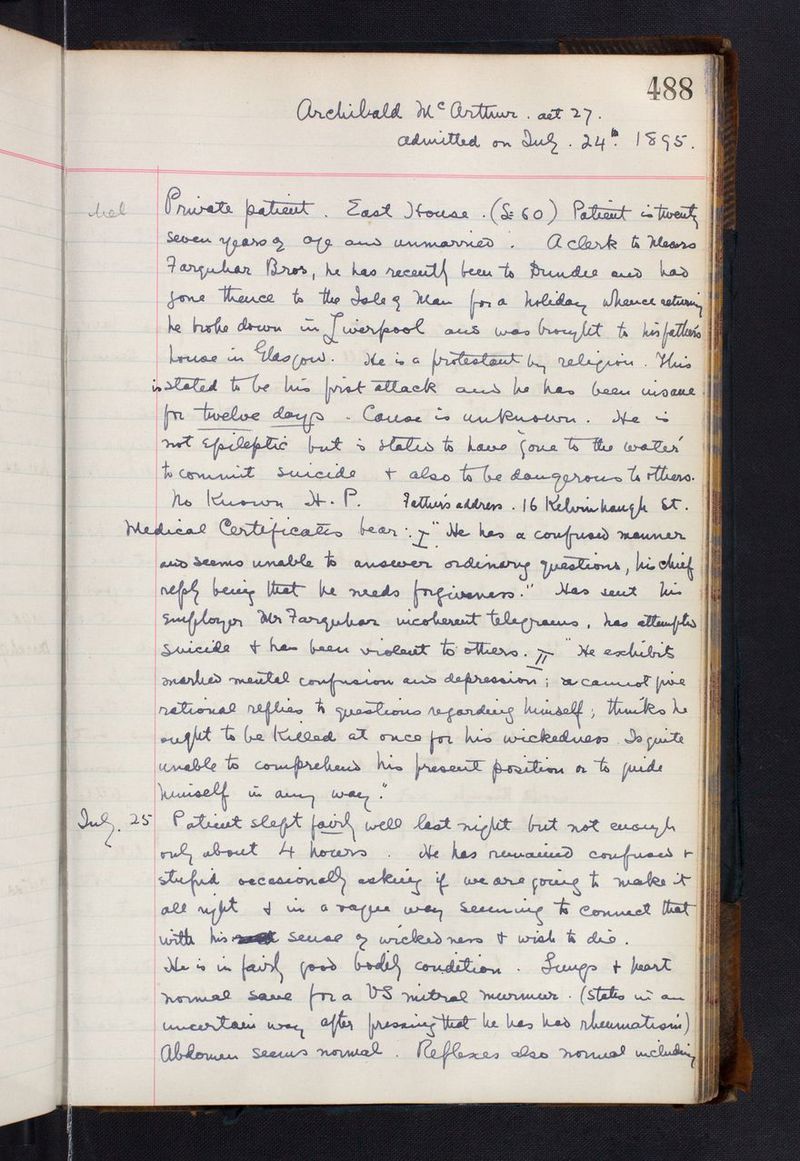 488
Archibald McArthur. aet 27.
admitted on July. 24th. 1895.
Mel Private patient. East House. (£60) Patient is twenty
seven years of age and unmarried. A clerk to Messrs
Farquhar Bros, he has recently been to Dundee and had
gone thence to the Isle of Man for a holiday whence returning
he broke down in Liverpool and was brought to his father's
house in Glasgow. He is a protestant by religion. This
is stated to be his first attack and he has been insane
for twelve days. Cause is unknown. He is
not epileptic but is stated to have 'gone to the water'
to commit suicide + also to be dangerous to others.
No Known H.P. Father's address. 16 Kelvinhaugh St.
Medical Certificates bear:. I "He has a confused manner
and seems unable to answer ordinary questions, his chief
reply being that he needs forgiveness." Has sent his
employer Mr Farquhar incoherent telegrams, has attempted
suicide + has been violent to others. II "He exhibits
marked mental confusion and depression; cannot give
rational replies to questions regarding himself; thinks he
ought to be Killed at once for his wickedness Is quite
unable to comprehend his present position or to guide
himself in any way."
July. 25 Patient slept fairly well last night but not enough
only about 4 hours. He has remained confused +
stupid occasionally asking if we are going to make it
all right & in a vague way seeming to connect that
with his sense of wickedness & wish to die.
He is in fairly good bodily condition. Lungs + heart
normal save for a VS mitral murmur. (States in an
uncertain way after pressing that he has had rheumatism)
Abdomen seems normal. Reflexes also normal including